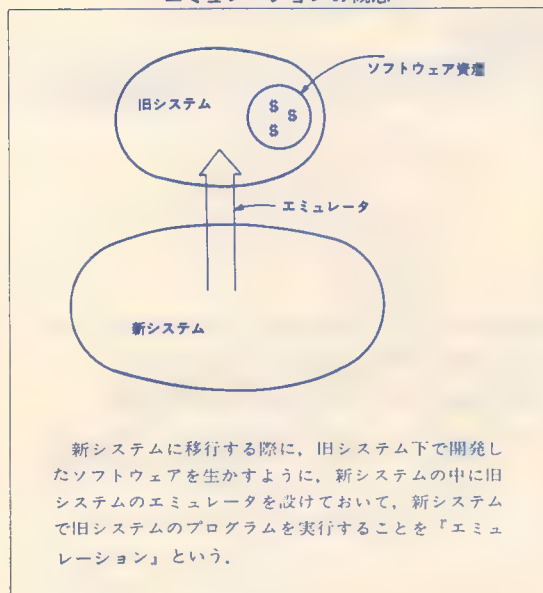 エミュレーションの概念
ソフトウェア資産
旧システム
$
$
$
エミュレータ
新システム
新システムに移行する際に，旧システム下で開発し
たソフトウェアを生かすように，新システムの中に旧
システムのエミュレータを設けておいて，新システム
で旧システムのプログラムを実行することを『エミュ
レーション』という．